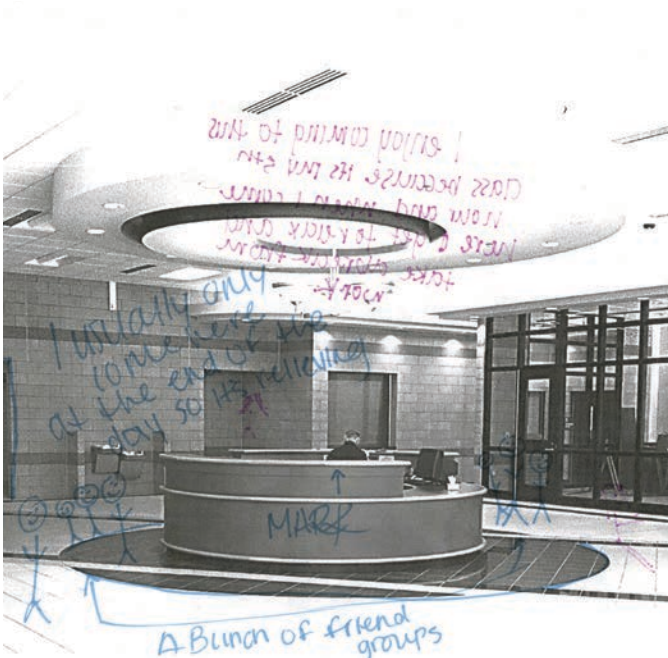 I enjoy coming to this
class because its my
and when I come
here I get to relax and
take a break from
work
I usually only
come here
at the end of the
day so its relieving
MARK
A Bunch of friend
groups